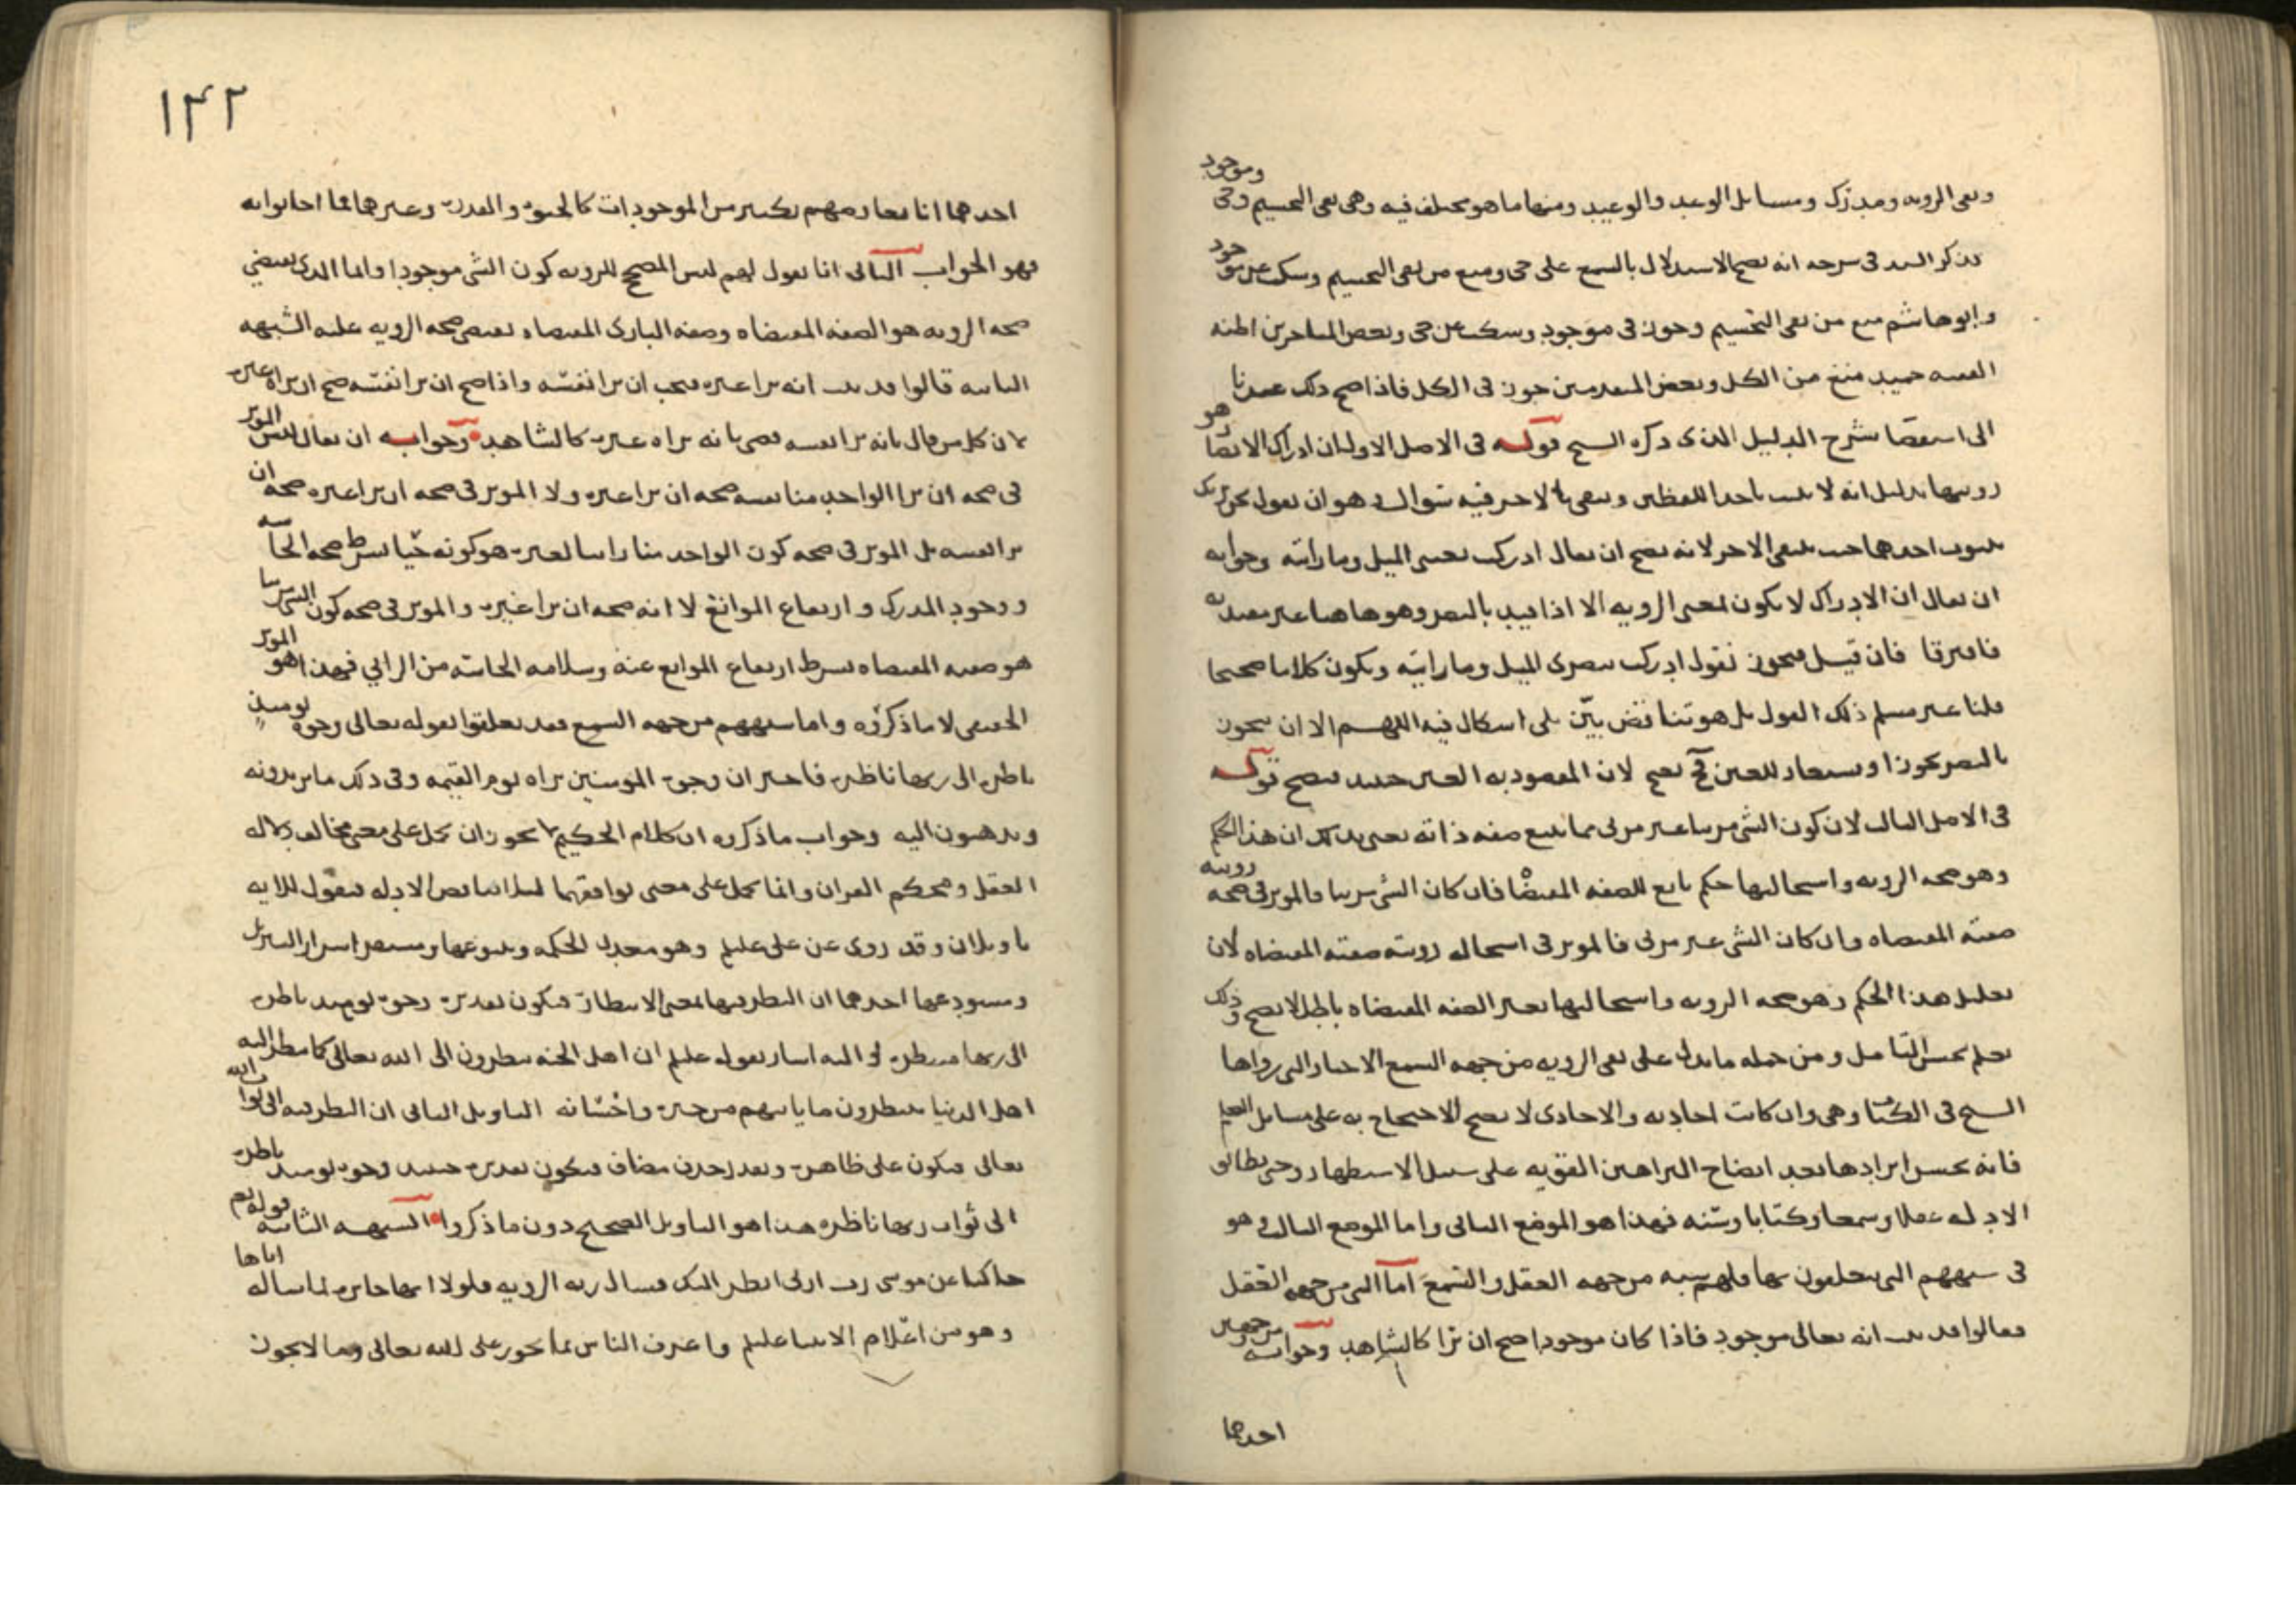 ونفى الرويه ومدرك ومسائل الوعد والوعيد ومنها ما هو مختلف فيه وهى نفى التجسيم وحى وموجود
قد ذكر السيد فى شرحه انه يصح الاستدلال بالسمع على حى ومنع من نفى التجسيم وسكت عن موجود
وابو هاشم منع من نفى التجسيم وجوز فى موجود وسكت عن حى وبعض المتاخرين اظنه
الفقيه حميد منع من الكل وبعض المتقدمين جوز فى الكل فاذا صح ذلك عدنا
الى استقصا شرح الدليل الذى ذكره الشيخ قوله فى الاصل الاول ان ادراك الابصار هو
رويتها بدليل انه لا يثبت باحد اللفظين وينفى بالاخر فيه سوال وهو ان نقول نحن نريك
ثبوت احدهما حيث ينتفى الاخر لانه يصح ان يقال ادركت ببصرى الميل وما رايته وجوابه
ان يقال ان الادراك لا يكون بمعنى الرويه الا اذا قيد بالبصر وهو هاهنا غير مقيد به
فافترقا فان قيل فيجوز نقول ادركت ببصرى الميل وما رايته ويكون كلاما صحيحا
قلنا غير مسلم ذلك القول بل هو تناقض بيّن بلى اشكال فيه اللهم الا ان يتجوز
بالبصر تجوزا ويستعار للعين فح يصح لان المقصود به العين حينئذ فيصح قوله
فى الاصل الثالث لان كون الشى مرييا وغير مرى مما يتبع صفه ذاته يعنى بذلك ان هذا الحكم
وهو صحه الرويه واستحالتها حكم تابع للصفه المقتضاه فان كان الشى مرييا فالموثر فى صحه رويته
صفته المقتضاه وان كان الشى غير مرى فالموثر فى استحاله رويته صفته المقتضاه لان
تعليل هذا الحكم وهو صحه الرويه واستحالتها بغير الصفه المقتضاه باطل لا يصح وذلك
يعلم بحسن التامل ومن جمله ما يدل على نفى الرويه من جهه السمع الاخبار التى رواها
الشيخ فى الكتاب وهى وان كانت احاديه والاحادى لا يصح الاحتجاج به على مسائل العلم
فانه يحسن ايرادها بعد ايضاح البراهين القويه على سبيل الاستظهار وحتى تطابق
الادله عقلا وسمعا وكتابا وسنه فهذا هو الموضع الثانى واما الموضع الثالث وهو
فى شبههم التى يتعلقون بها فلهم شبه من جهه العقل والسمع اما التى من جهه العقل
فقالوا قد ثبت انه تعالى موجود فاذا كان موجودا صح ان يرا كالشاهد وجوابه من وجهين
احدهما
١٤٢
احدهما انا نعارضهم بكثير من الموجودات كالحيوه والقدره وغيرهما فما اجابوا به
فهو الجواب الثانى انا نقول لهم ليس المصحح للرويه كون الشى موجودا وانما الذى يقتضي
صحه الرويه هو الصفه المقتضاه وصفه البارى المقتضاه تقتضى صحه الرويه عليه الشبهه
الثانيه قالوا قد ثبت انه يرا غيره فيجب ان يرا نفسه واذا صح ان يرا نفسه صح ان يراه غيره
لان كل من قال بانه يرا نفسه قضى بانه يراه غيره كالشاهد وجوابه ان يقال ليس الموثر
فى صحه ان يرا الواحد منا نفسه صحه ان يرا غيره ولا الموثر فى صحه ان يرا غيره صحه ان
يرا نفسه بل الموثر فى صحه كون الواحد منا رايا لغيره هو كونه حيّا بشرط صحه الحاسه
ووجود المدرك وارتفاع الموانع لا انه صحه ان يرا غيره والموثر فى صحه كون الشى مرييا
هو صفته المقتضاه بشرط ارتفاع الموانع عنه وسلامه الحاسه من الرائي فهذا هو الموثر
الحقيقى لا ما ذكروه واما شبههم من جهه السمع فقد تعلقوا بقوله تعالى وجوه يوميذ
ناظره الى ربها ناظره فاخبر ان وجوه المومنين تراه يوم القيمه وفى ذلك ما يريدونه
ويذهبون اليه وجواب ما ذكروه ان كلام الحكيم لا يجوز ان يحمل على معنى مخالف دلاله
العقل ومحكم القران وانما يحمل على معنى يوافقهما ليلا تتناقض الادله فنقول للايه
تاويلان وقد روى عن على عليلم وهو معدن الحكمه وينبوعها ومستقر اسرار التنزيل
ومستودعها احدهما ان النظر فيها بمعنى الانتظار فيكون تقديره وجوه يوميذ ناظره
الى ربها منتظره واليه اشار بقوله عليلم ان اهل الجنه ينظرون الى الله تعالى كما ينظر اليه
اهل الدنيا ينتظرون ما ياتيهم من خيره واحسانه التاويل الثانى ان النظر فيه الى ثواب الله
تعالى فيكون على ظاهره وتقدر حذف مضاف فيكون تقديره حينئذ وجوه يوميذ ناظره
الى ثواب ربها ناظره هذا هو التاويل الصحيح دون ما ذكروا الشبهه الثانيه قولهم
حاكيا عن موسى رب ارنى انظر اليك فسال ربه الرويه فلولا انها جايزه لما ساله اياها
وهو من اعلام الانبيا عليلم واعرف الناس بما يجوز على الله تعالى وما لا يجوز